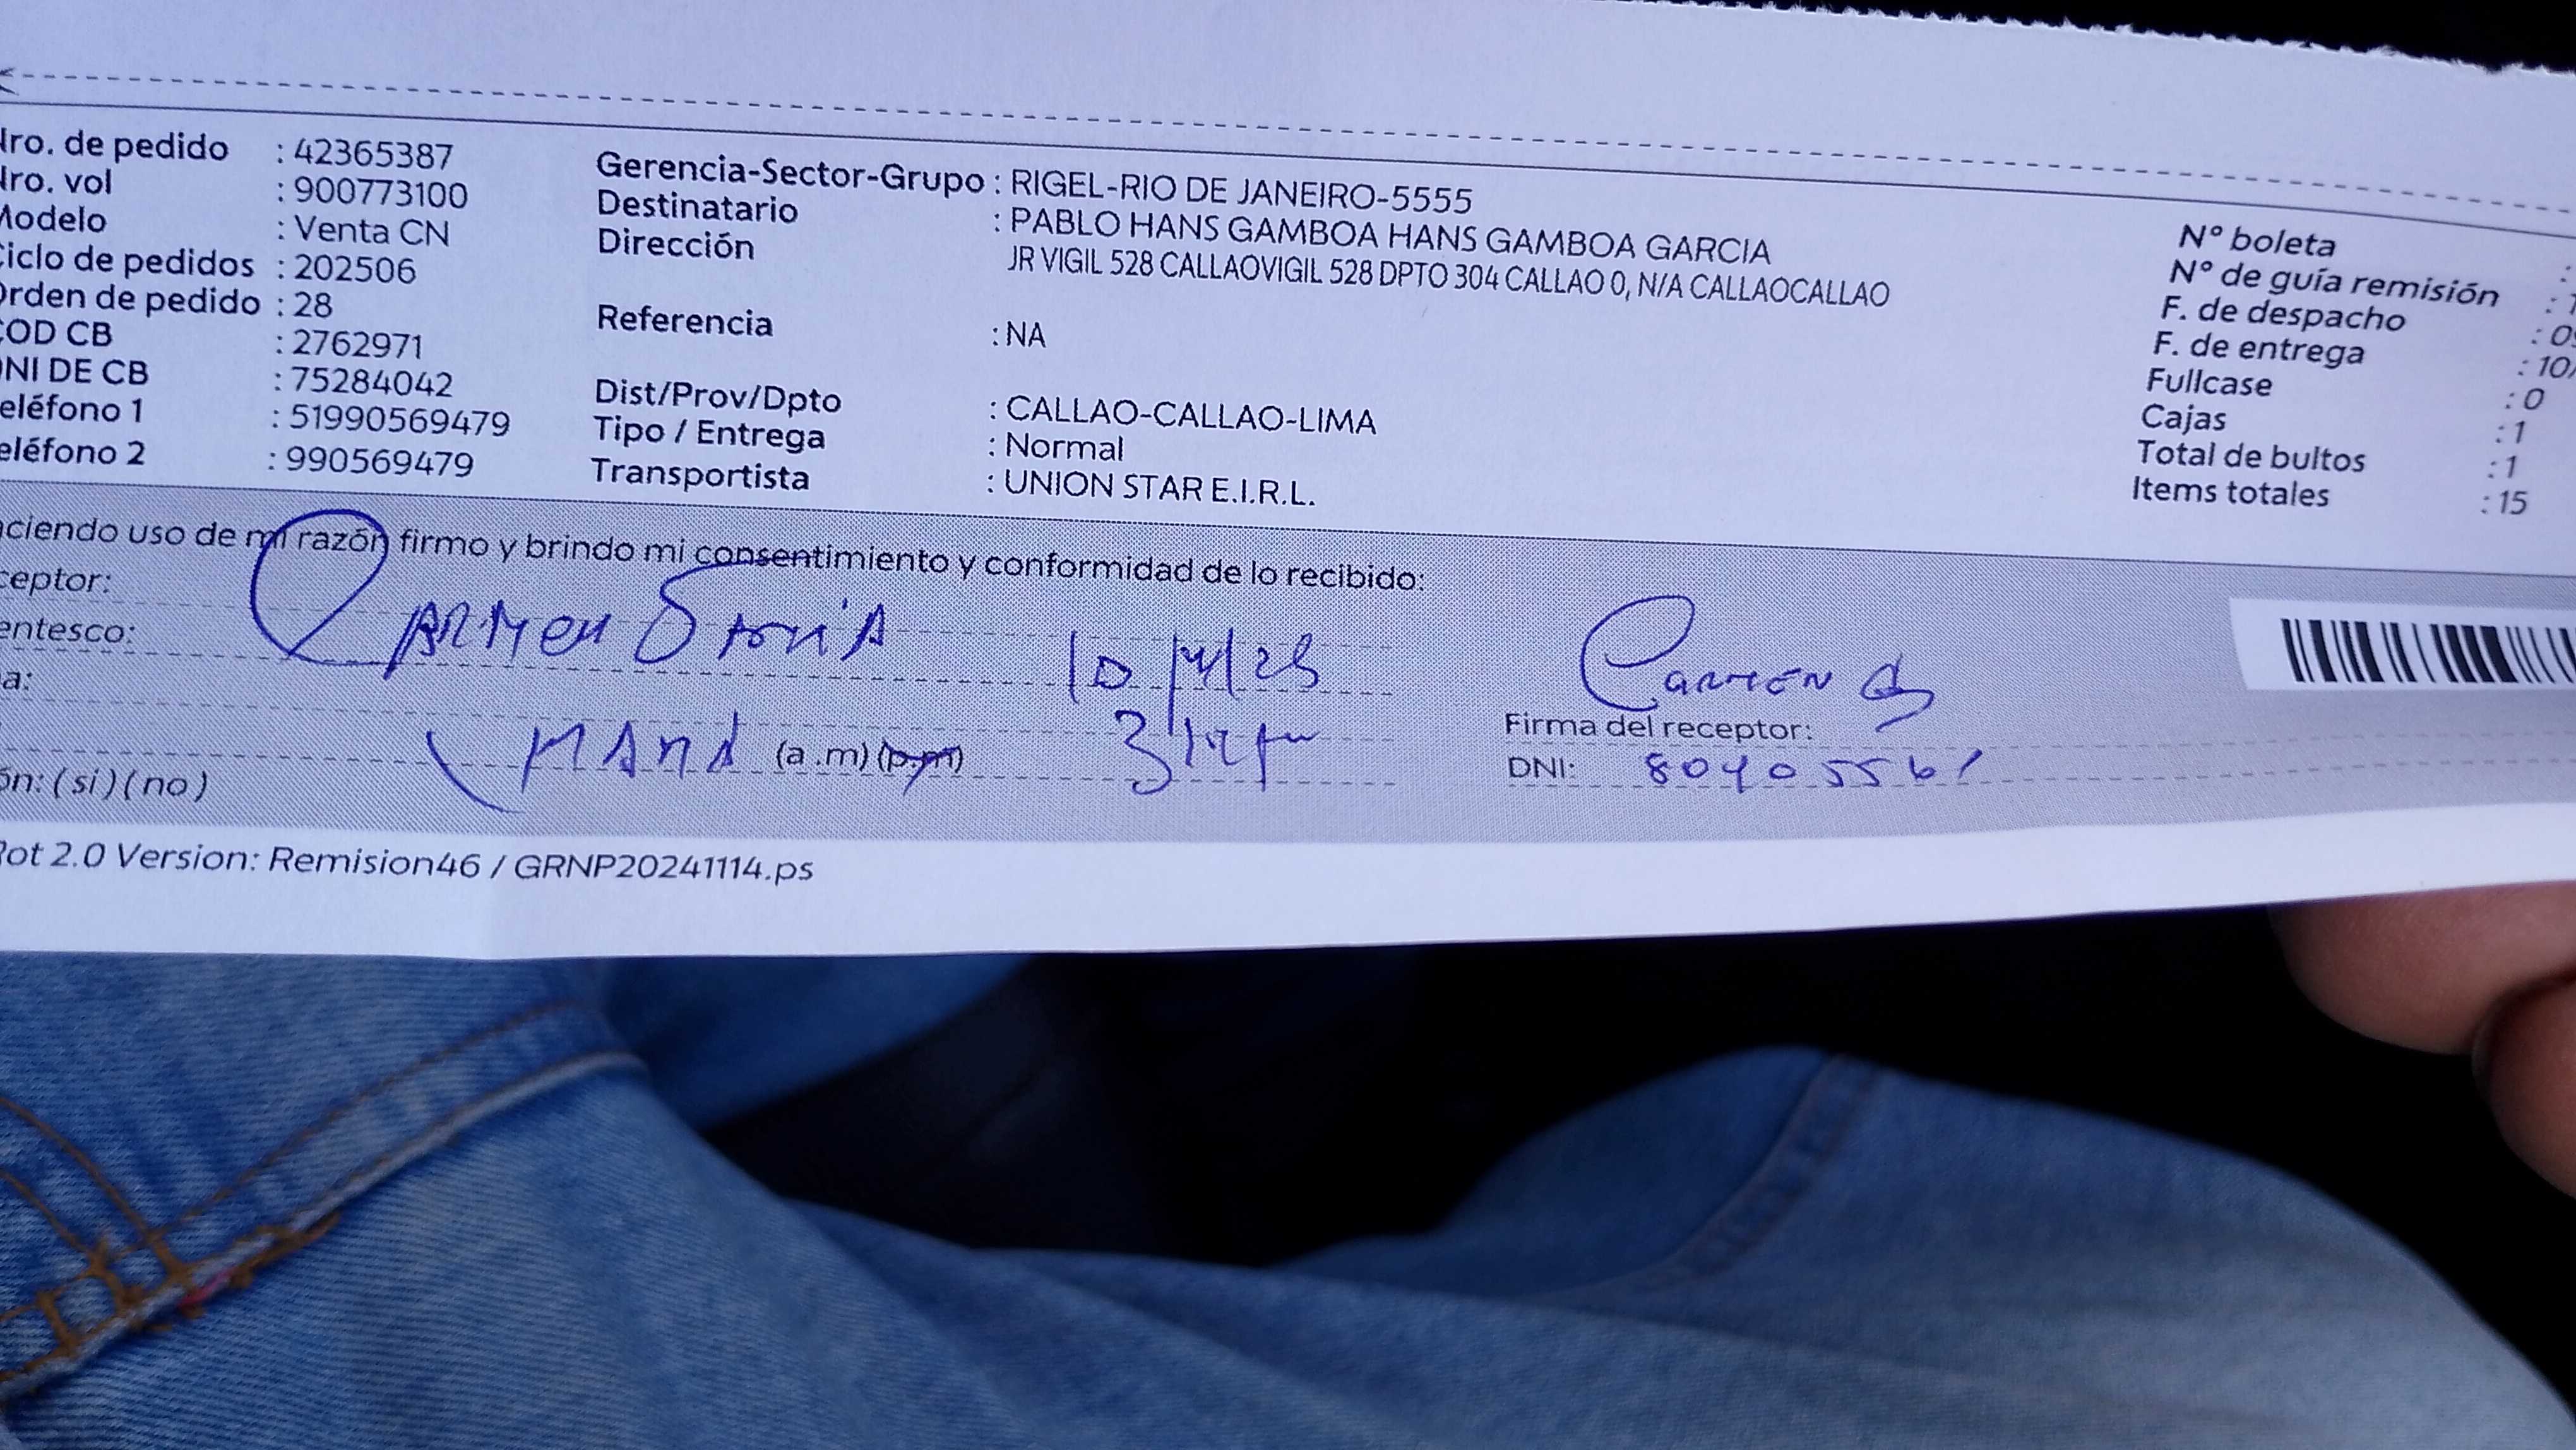 Nro. de pedido : 42365387
Nro. vol : 900773100
Modelo : Venta CN
Ciclo de pedidos : 202506
Orden de pedido : 28
COD CB : 2762971
DNI DE CB : 75284042
Teléfono 1 : 51990569479
Teléfono 2 : 990569479
Gerencia-Sector-Grupo : RIGEL-RIO DE JANEIRO-5555
Destinatario : PABLO HANS GAMBOA HANS GAMBOA GARCIA
Dirección JR VIGIL 528 CALLAOVIGIL 528 DPTO 304 CALLAO 0, N/A CALLAOCALLAO
Referencia : NA
Dist/Prov/Dpto : CALLAO-CALLAO-LIMA
Tipo / Entrega : Normal
Transportista : UNION STAR E.I.R.L.
N° boleta :
N° de guía remisión : 1
F. de despacho : 09
F. de entrega : 10/
Fullcase : 0
Cajas : 1
Total de bultos : 1
Items totales : 15
aciendo uso de mi razón firmo y brindo mi consentimiento y conformidad de lo recibido:
ceptor: CARMEN
entesco:
a:
(a .m) (p.m)
ón: ( si ) ( no )
CARMEN
Firma del receptor:
DNI:
Rot 2.0 Version: Remision46 / GRNP20241114.ps